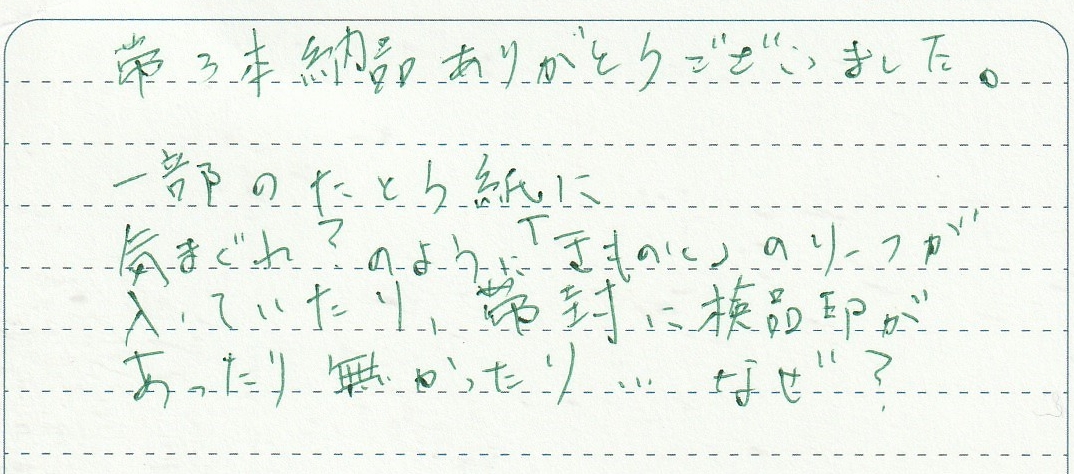 帯3本納品ありがとうございました。
一部のたとう紙に
気まぐれ?のように「きもの(と)」のリーフが
入っていたり、帯封に検品印が
あったり無かったり… なぜ?